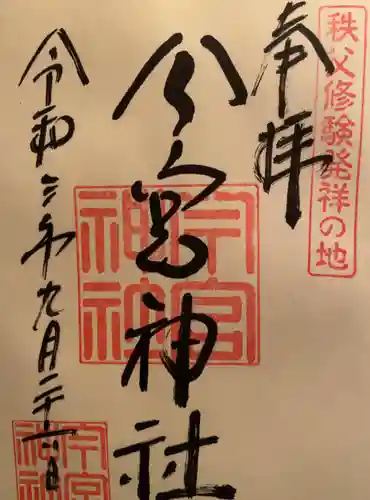 秩父修験発祥の地
奉拝
今宮神社
今宮神社
令和三年九月二十六日
今宮神社